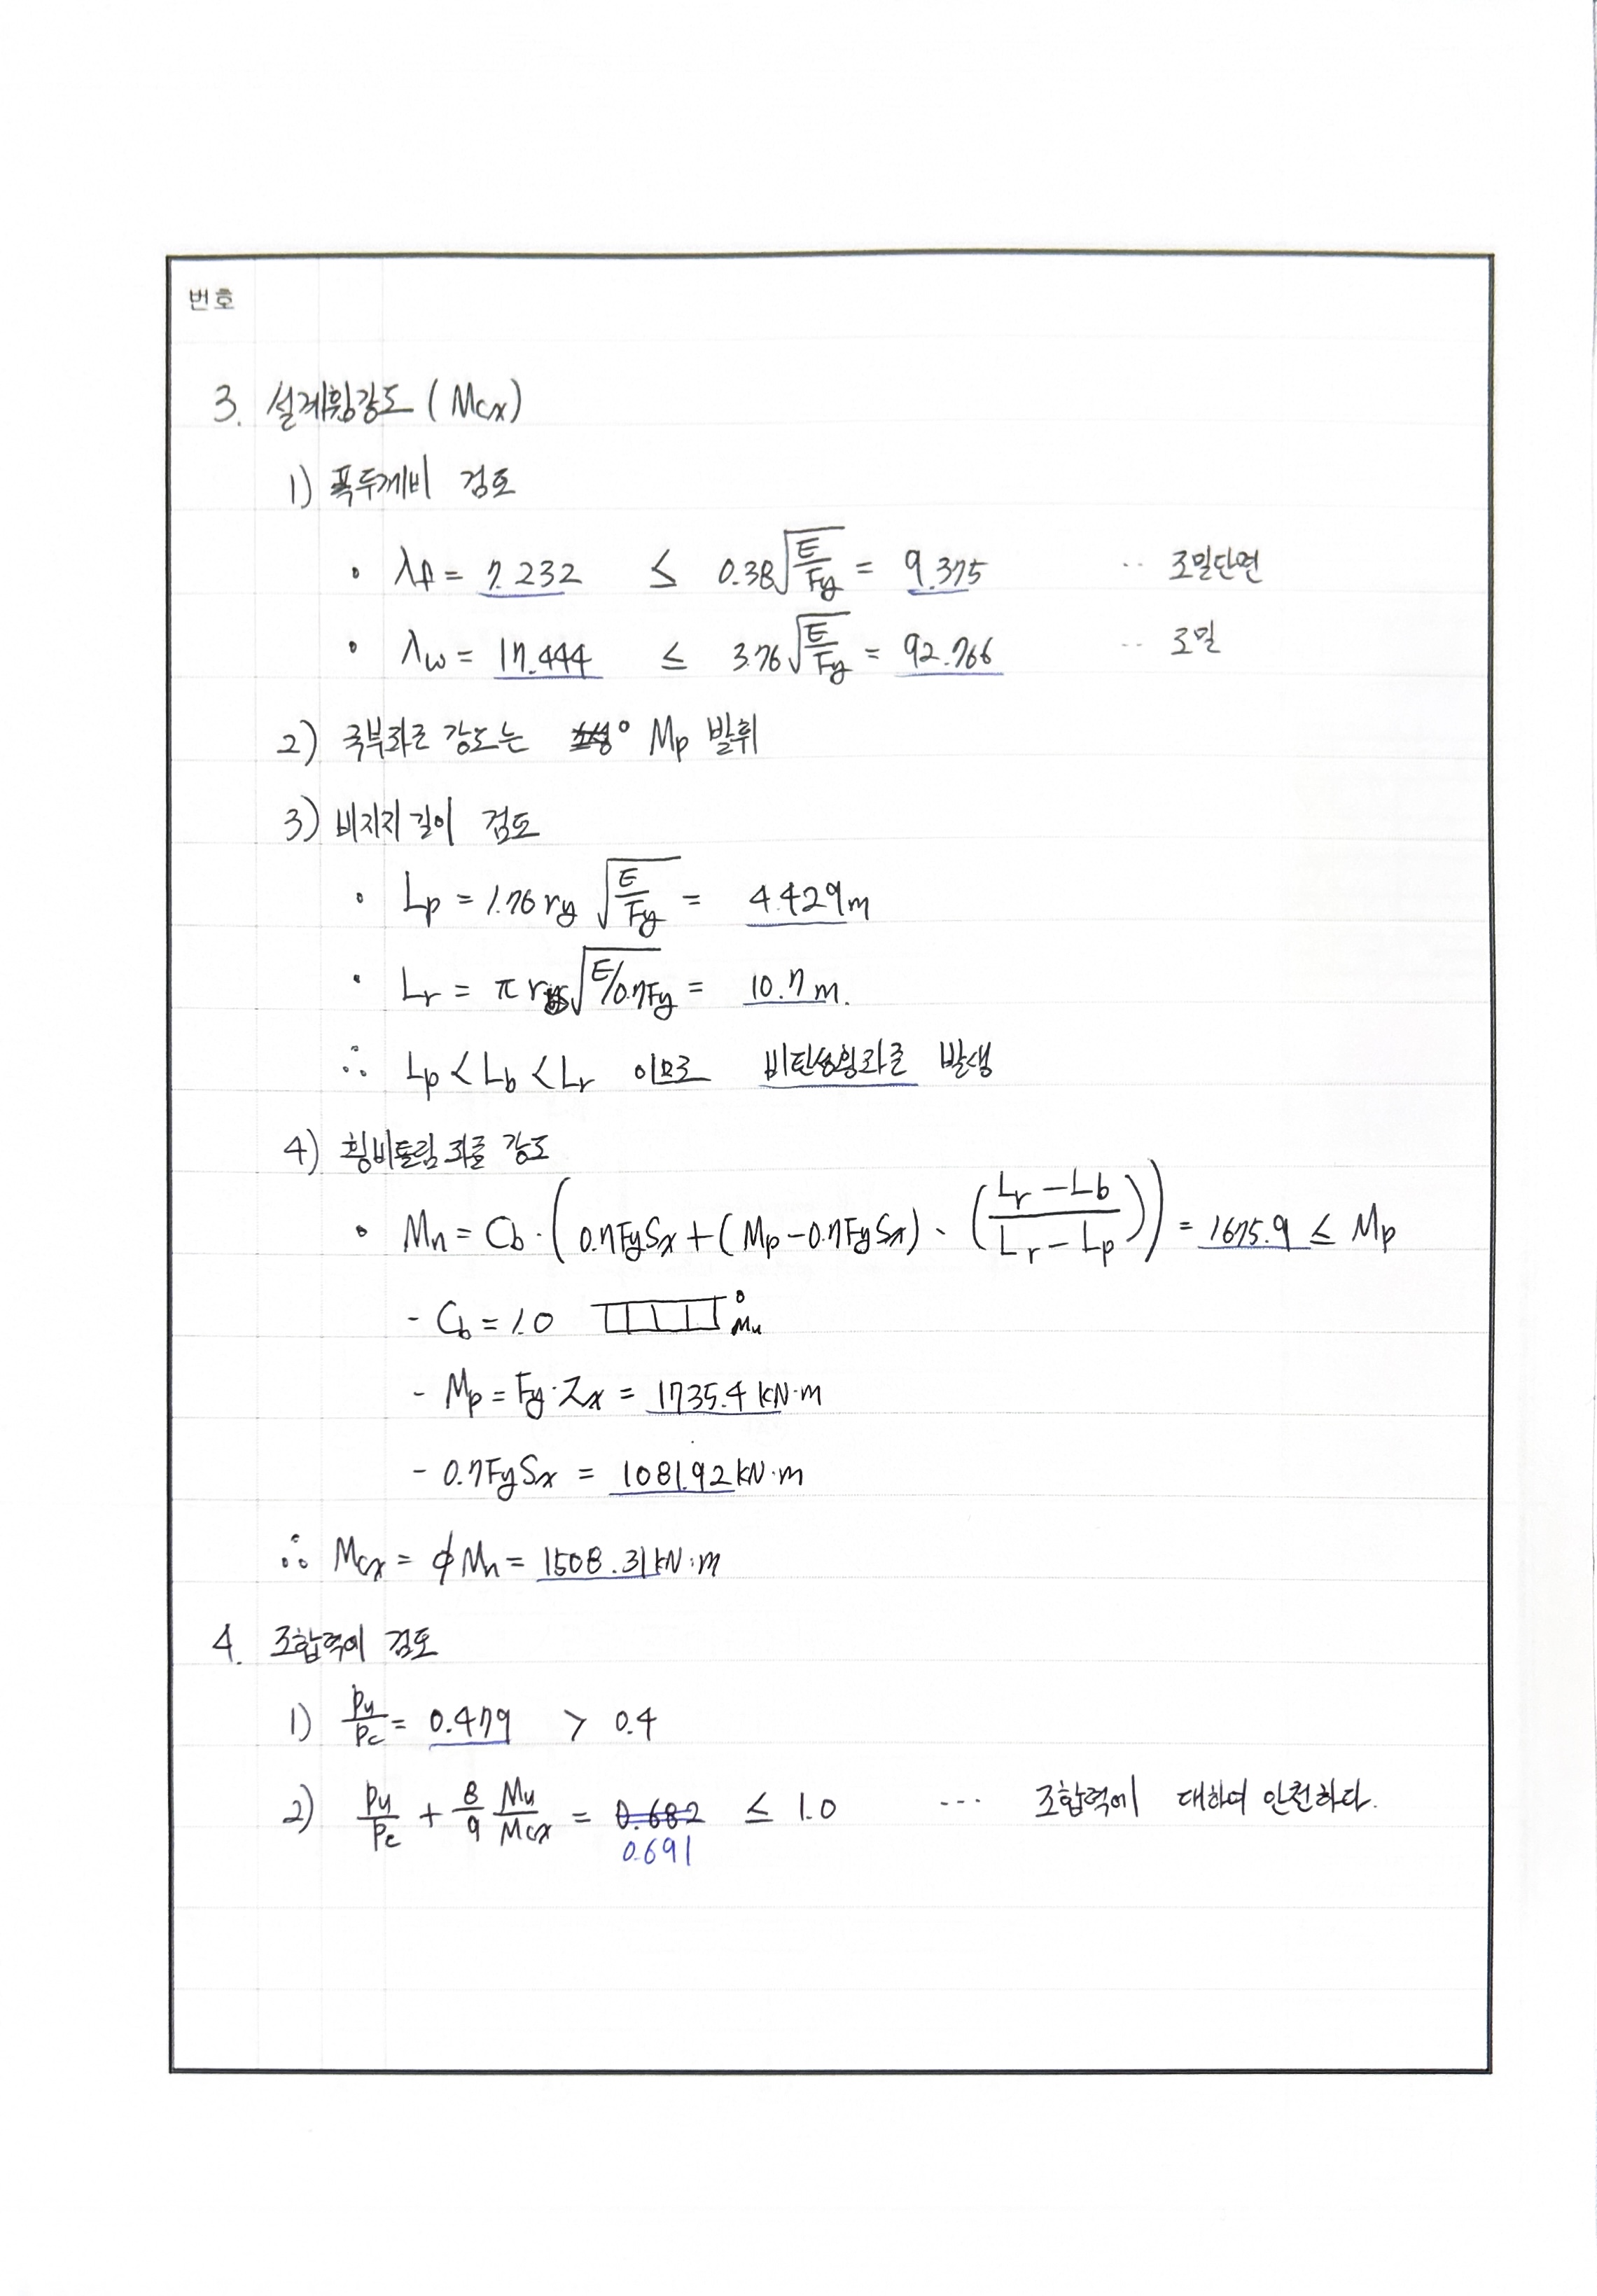 번호
3. 설계휨강도 (Mcx)
1) 폭두께비 검토
• λf = 7.232 ≤ 0.38√(E/Fy) = 9.375 ‥ 조밀단면
• λw = 17.444 ≤ 3.76√(E/Fy) = 92.766 ‥ 조밀
2) 국부좌굴 강도는 Mp 발휘
3) 비지지길이 검토
• Lp = 1.76 ry √(E/Fy) = 4.429m
• Lr = π r √(E/0.7Fy) = 10.7 m.
∴ Lp < Lb < Lr 이므로 비탄성횡좌굴 발생
4) 횡비틀림좌굴 강도
• Mn = Cb · (0.7FySx + (Mp - 0.7FySx) · ((Lr - Lb)/(Lr - Lp))) = 1675.9 ≤ Mp
- Cb = 1.0 Mu
- Mp = Fy · Zx = 1735.4 kN·m
- 0.7FySx = 1081.92 kN·m
∴ Mcx = φMn = 1508.31 kN·m
4. 조합력에 검토
1) Pu/Pc = 0.479 > 0.4
2) Pu/Pc + 8/9 Mu/Mcx = 0.682 ≤ 1.0 … 조합력에 대하여 안전하다.
0.691